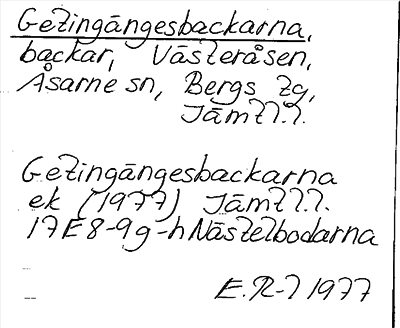 Getingångesbackarna,
backar, Västeråsen,
Åsarne sn, Bergs tg,
Jämtl.l.
Getingångesbackarna
ek (1977) Jämtl.l.
17E 8-9 g-h Nästelbodarna
E.R-l 1977